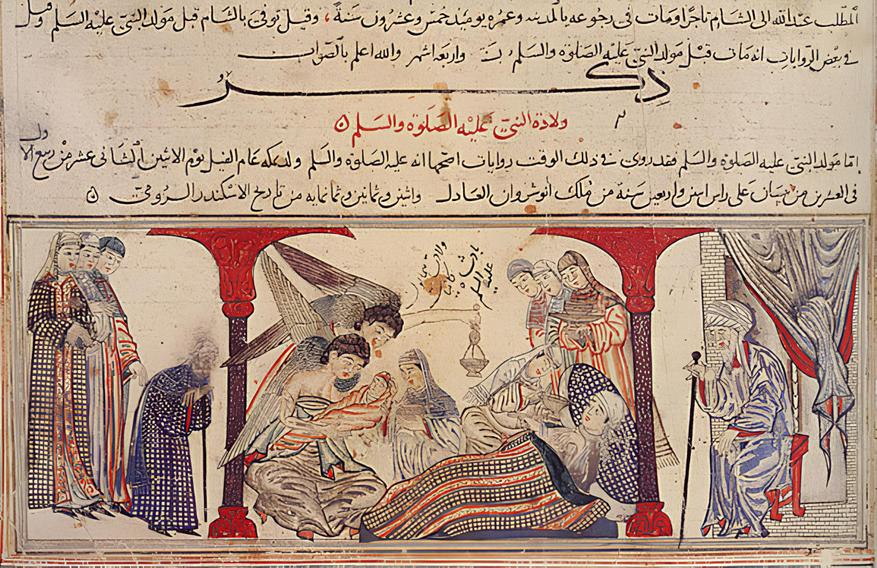 المطلب عبد الله الى الشام تاجرا ومات فى رجوعه بالمدينه وعمره يوميذ خمس وعشرون سنة وقيل توفى بالشام قبل مولد النبى عليه السلم وقيل
فى بعض الروايات انه مات قبل مولد النبى عليه الصلوة والسلم بسنة واربعة اشهر والله اعلم بالصواب
ذكر
ولادة النبى عليه الصلوة والسلم
اما مولد النبى عليه الصلوة والسلم فقد روى فى ذلك الوقت روايات اصحها انه عليه الصلوة والسلم ولد بمكه عام الفيل يوم الاثنين الثانى عشر من ربيع الاول
فى العشرين من نيسان على راس اثنين واربعين سنة من ملك انوشروان العادل واثنين وثمانين وثمانمايه من تاريخ الاسكندر الرومى